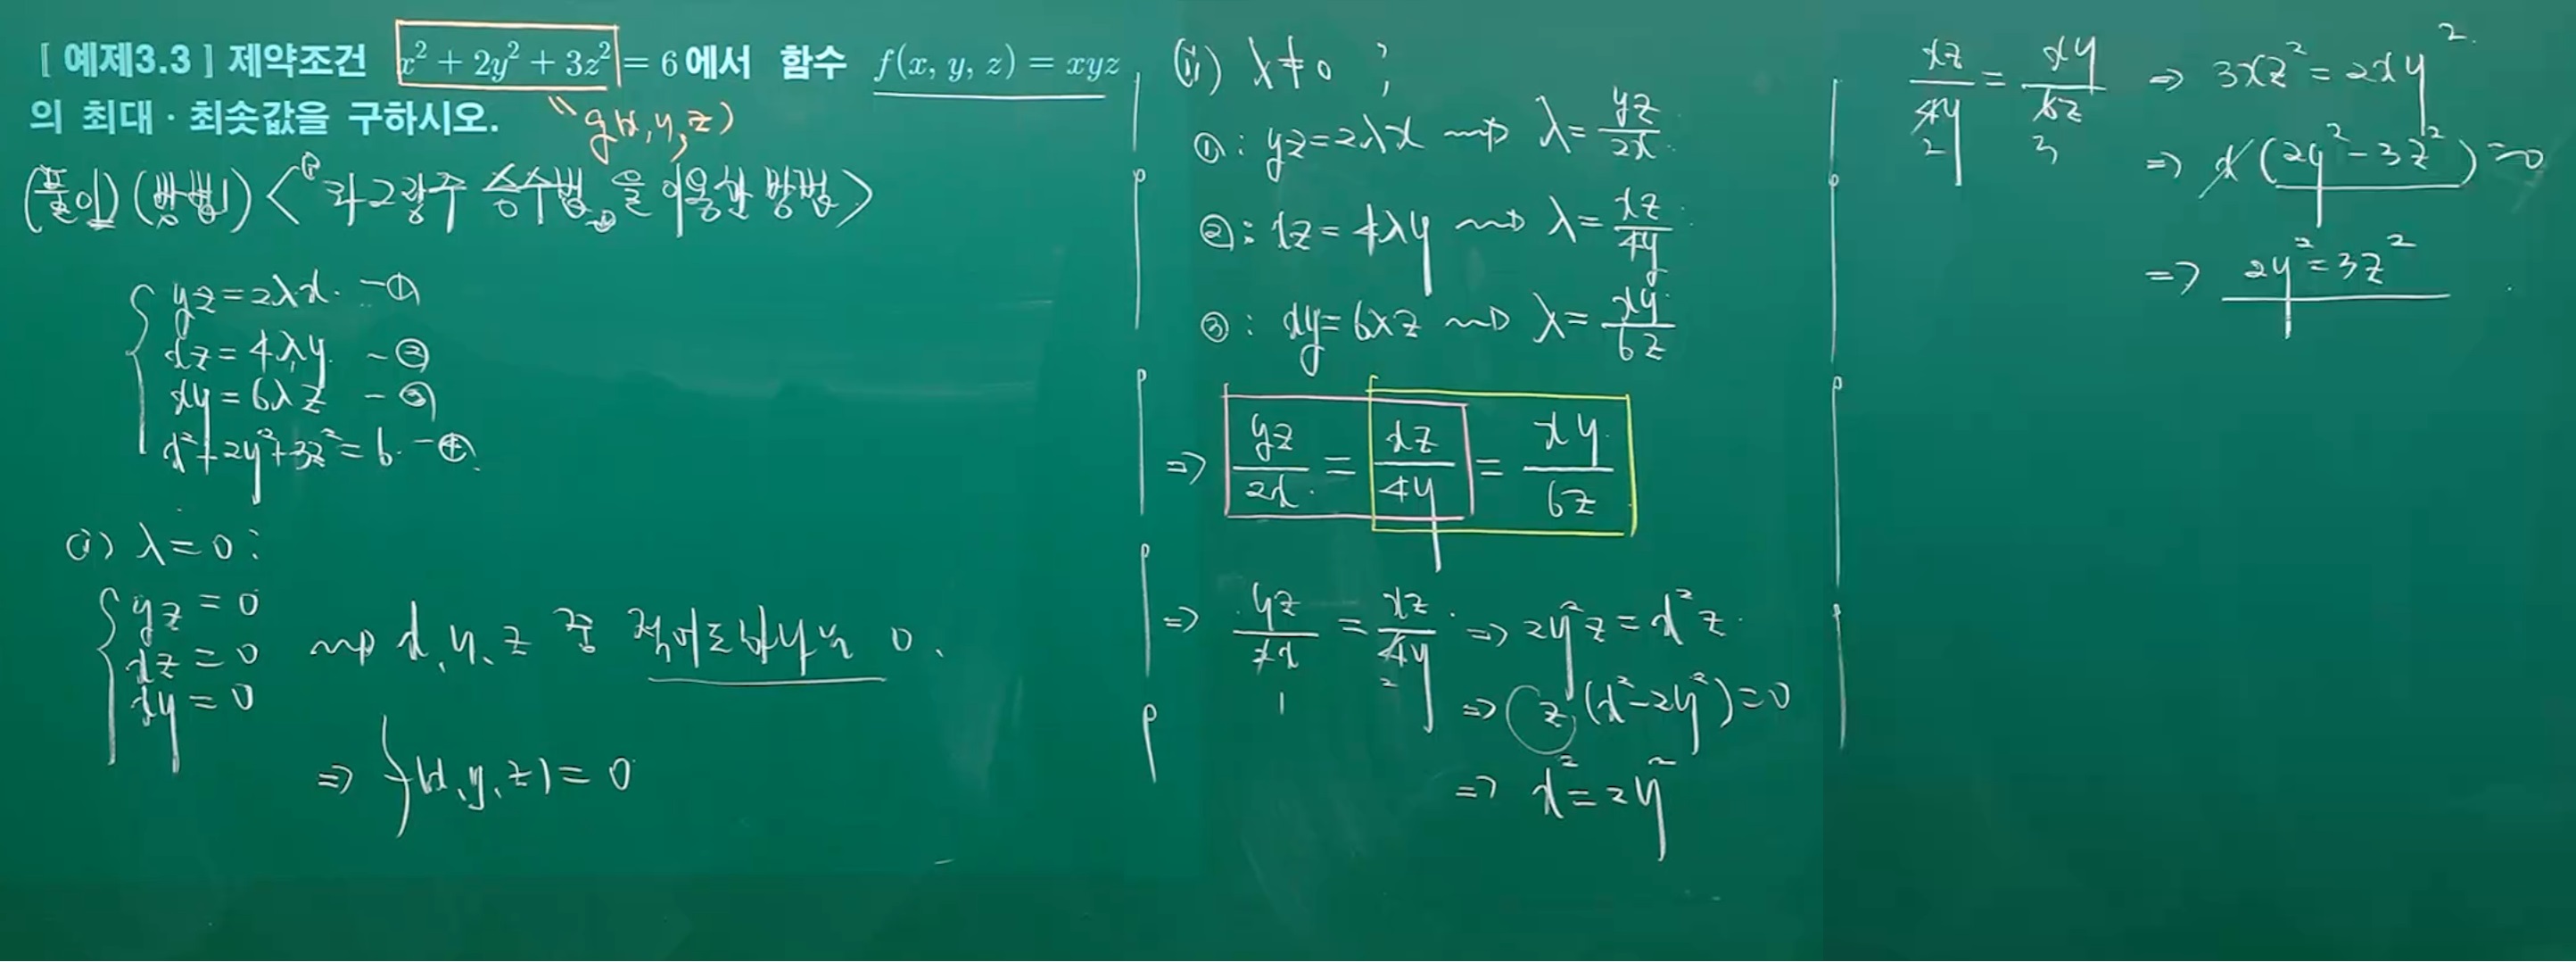 [ 예제3.3 ] 제약조건 x² + 2y² + 3z² = 6에서 함수 f(x, y, z) = xyz
의 최대 · 최솟값을 구하시오.
" g(x, y, z)
(풀이) (방법1) < "라그랑주 승수법"을 이용한 방법 >
yz = 2λx. - ①
xz = 4λy. - ②
xy = 6λz - ③
x² + 2y² + 3z² = 6. - ④
(i) λ = 0 :
yz = 0
xz = 0
xy = 0
~> x, y, z 중 적어도 하나는 0.
=> f(x, y, z) = 0
(ii) λ ≠ 0 ;
① : yz = 2λx ~> λ = yz/2x.
② : xz = 4λy ~> λ = xz/4y
③ : xy = 6λz ~> λ = xy/6z
=> yz/2x = xz/4y = xy/6z
=> yz/2x = xz/4y => 2y²z = x²z.
1 2
=> z(x² - 2y²) = 0
=> x² = 2y²
xz/4y = xy/6z => 3xz² = 2xy².
2 3
=> x(2y² - 3z²) = 0
=> 2y² = 3z²